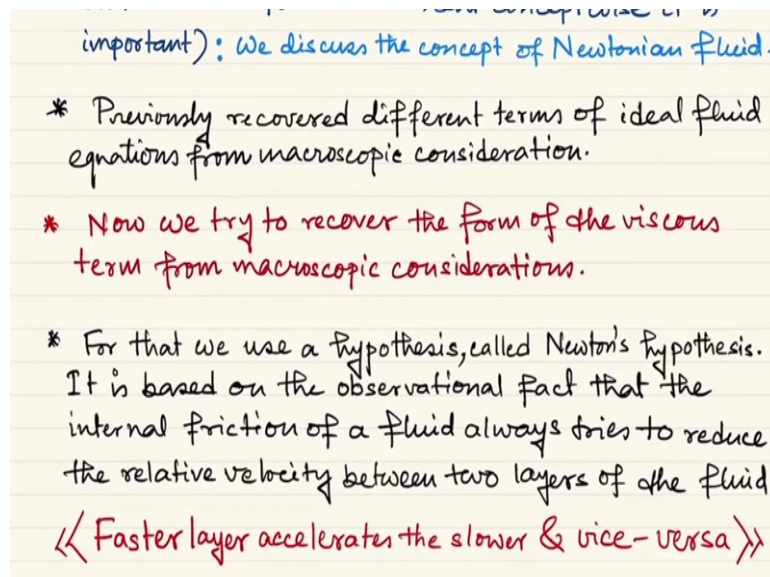 important): We discuss the concept of Newtonian fluid.
* Previously recovered different terms of ideal fluid
equations from macroscopic consideration.
* Now we try to recover the form of the viscous
term from macroscopic considerations.
* For that we use a hypothesis, called Newton's hypothesis.
It is based on the observational fact that the
internal friction of a fluid always tries to reduce
the relative velocity between two layers of the fluid
<< Faster layer accelerates the slower & vice-versa >>